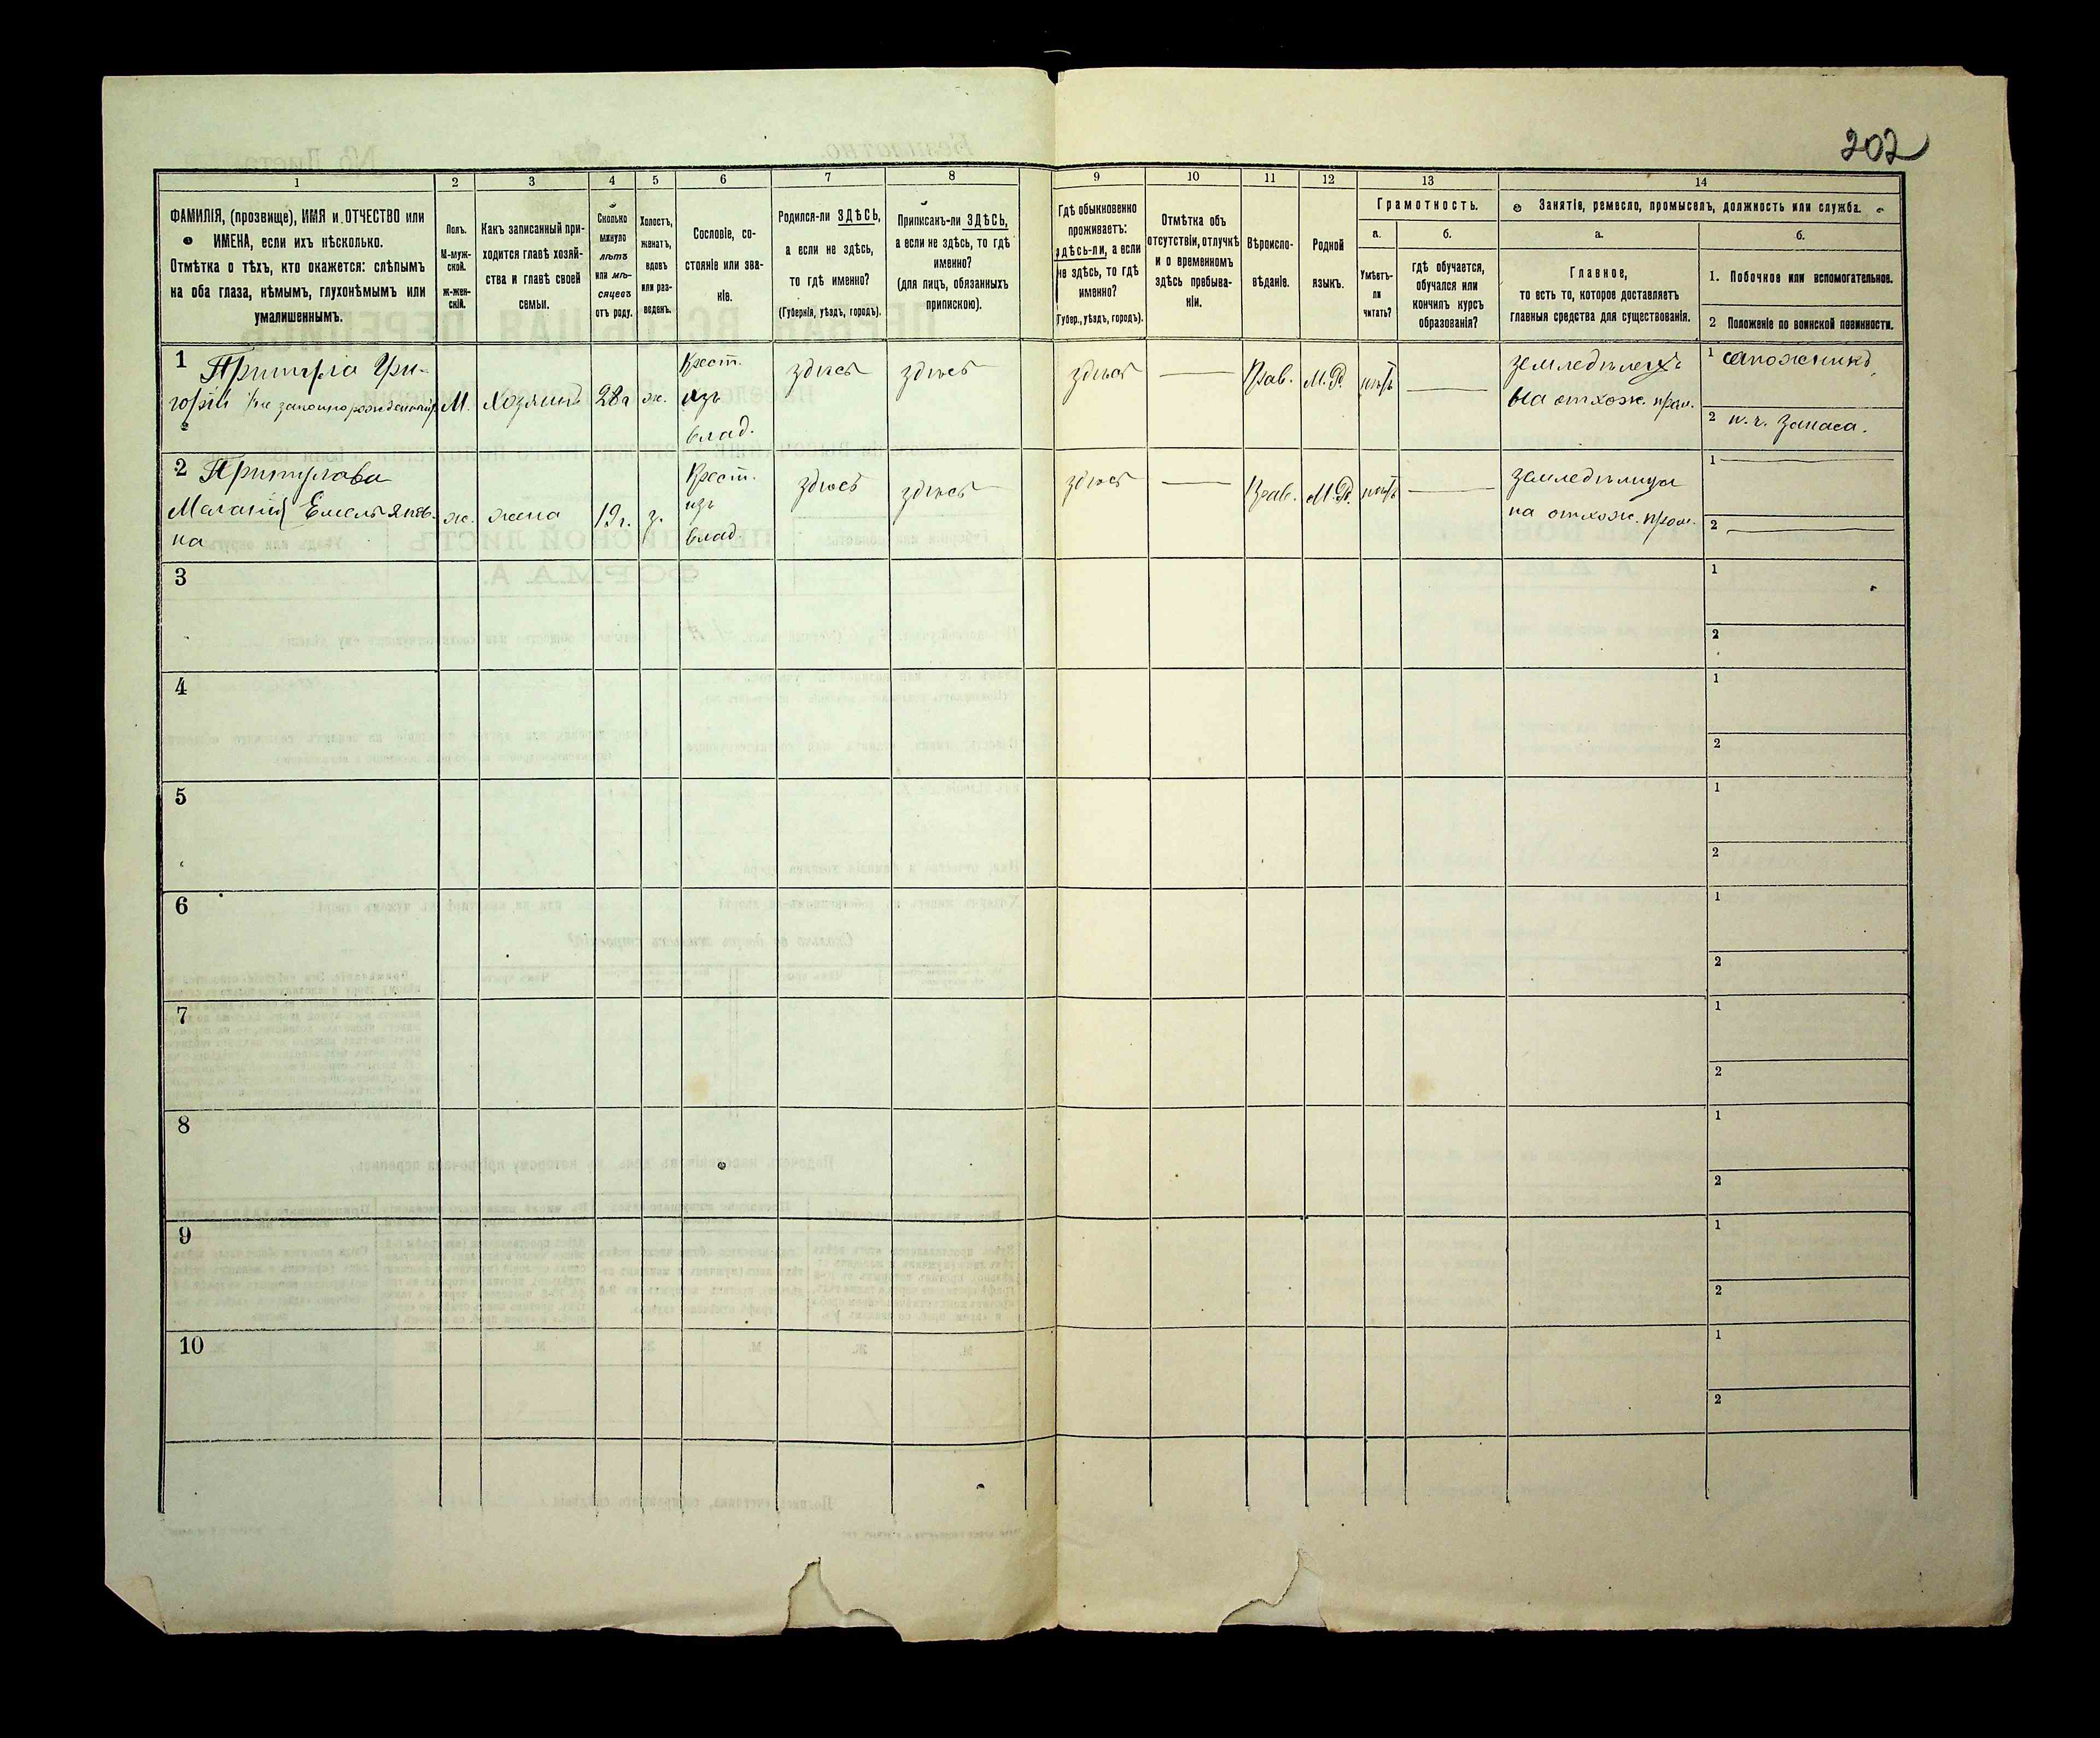 202
1
2
3
4
5
6
7
8
9
10
11
12
13
14
ФАМИЛІЯ, (прозвище), ИМЯ и ОТЧЕСТВО или
ИМЕНА, если ихъ нѣсколько.
Отмѣтка о тѣхъ, кто окажется: слѣпымъ
на оба глаза, нѣмымъ, глухонѣмымъ или
умалишеннымъ.
Полъ.
М-муж-
ской.
ж-жен-
скій.
Какъ записанный при-
ходится главѣ хозяй-
ства и главѣ своей
семьи.
Сколько
минуло
лѣтъ
или мѣ-
сяцевъ
отъ роду.
Холостъ,
женатъ,
вдовъ
или раз-
веденъ.
Сословіе, со-
стояніе или зва-
ніе.
Родился-ли ЗДѢСЬ,
а если не здѣсь,
то гдѣ именно?
(Губернія, уѣздъ, городъ).
Приписанъ-ли ЗДѢСЬ,
а если не здѣсь, то гдѣ
именно?
(для лицъ, обязанныхъ
припискою).
Гдѣ обыкновенно
проживаетъ:
здѣсь-ли, а если
не здѣсь, то гдѣ
именно?
(Губер., уѣздъ, городъ).
Отмѣтка объ
отсутствіи, отлучкѣ
и о временномъ
здѣсь пребыва-
ніи.
Вѣроиспо-
вѣданіе.
Родной
языкъ.
Грамотность.
а.
Умѣетъ-
ли
читать?
б.
гдѣ обучается,
обучался или
кончилъ курсъ
образованія?
Занятіе, ремесло, промыселъ, должность или служба.
а.
Главное,
то есть то, которое доставляетъ
главныя средства для существованія.
б.
1. Побочное или вспомогательное.
2 Положеніе по воинской повинности.
1 Притула Гри-
горій
М. Хозяинъ 28 г ж.
Крест.
изъ
влад.
здѣсь здѣсь здѣсь — Прав. М. Р. нѣтъ —
на отхож. пром.
1 сапожникъ
2 запаса.
2 Притулова
Маланія Емельянов-
на
ж. жена 19 г. з.
Крест.
изъ
влад.
здѣсь здѣсь здѣсь — Прав. М. Р. нѣтъ —
земледѣлица
на отхож. пром.
1 —
2 —
3
1
2
4
1
2
5
1
2
6
1
2
7
1
2
8
1
2
9
1
2
10
1
2